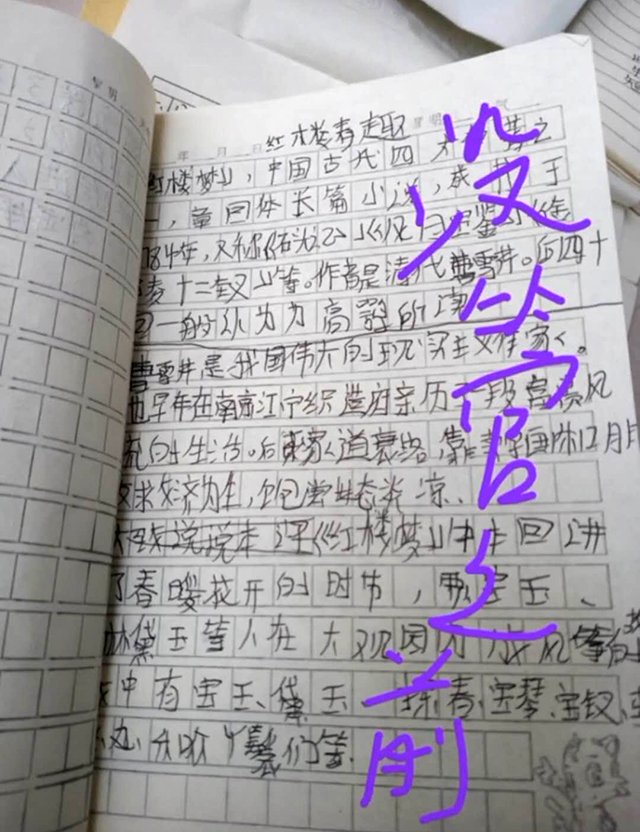 红楼春趣
年 月 日 星期
红楼梦》,中国古代四大名著之
一,章回体长篇小说,成书于
784年,又称《石头记》《风月宝鉴》《金
陵十二钗》等。作者是清代曹雪芹。后四十
回一般认为为高鹗所
曹雪芹是我国伟大的现实主义作家。
他早年在南京江宁织造府亲历了段富
的生活。后来家道衰落,靠
济为生,饱尝世态炎凉、
说说本 《红楼梦》中本回讲
了春暖花开的时节,贾宝玉、
林黛玉等人在大观园内放风筝的
中有宝玉、黛玉、探春、宝琴、宝钗、
以及众 丫鬟们等
没管之前